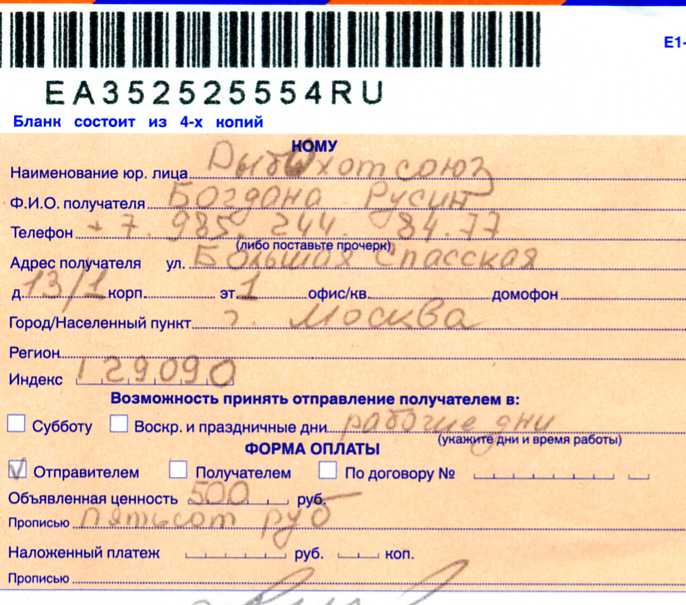 E1-
EA352525554RU
Бланк состоит из 4-х копий
КОМУ
Наименование юр. лица Рыбохотсоюз
Ф.И.О. получателя Богдана Русин
Телефон +7. 985. 244. 84.77
(либо поставьте прочерк)
Адрес получателя ул. Большая Спасская
д. 13/1 корп. эт. 1 офис/кв. домофон
Город/Населенный пункт г. Москва
Регион
Индекс 129090
Возможность принять отправление получателем в:
Субботу Воскр. и праздничные дни рабочие дни
(укажите дни и время работы)
ФОРМА ОПЛАТЫ
Отправителем Получателем По договору №
Объявленная ценность 500 руб.
Прописью пятьсот руб
Наложенный платеж руб. коп.
Прописью